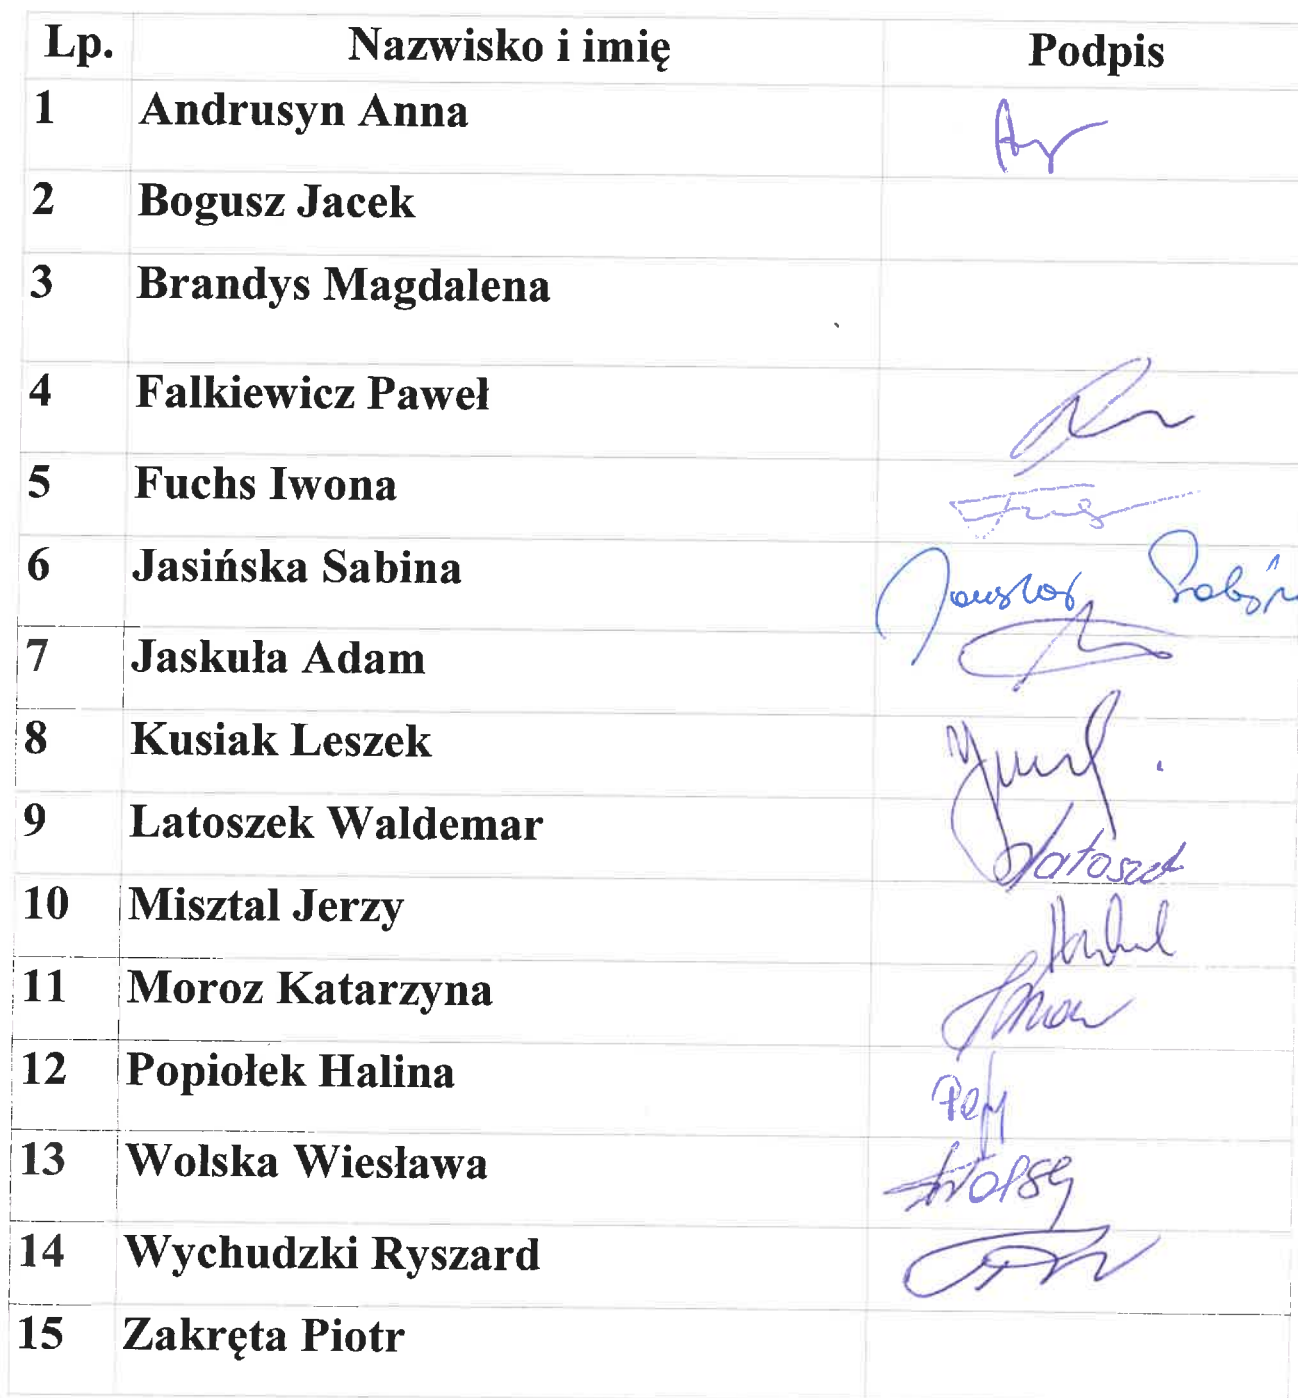 Lp. Nazwisko i imię Podpis
1 Andrusyn Anna
2 Bogusz Jacek
3 Brandys Magdalena
4 Falkiewicz Paweł
5 Fuchs Iwona
6 Jasińska Sabina
7 Jaskuła Adam
8 Kusiak Leszek
9 Latoszek Waldemar Latoszek
10 Misztal Jerzy
11 Moroz Katarzyna
12 Popiołek Halina
13 Wolska Wiesława
14 Wychudzki Ryszard
15 Zakręta Piotr